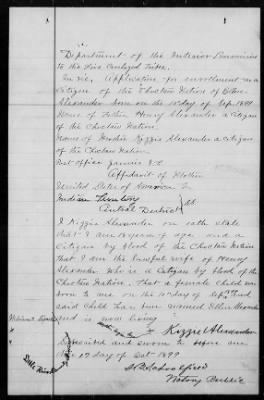 Department of the Interior Commission
to the Five Civilized Tribes.
In re, Application for enrollment as a
Citizen of the Choctaw Nation of
Alexander born on the 10 day of Sep. 1899
Name of Father Henry Alexander a citizen
of the Choctaw Nation.
Name of Mother Kizzie Alexander a citizen
of the Choctaw Nation.
Post Office
Affidavit of Mother
United States of America
Indian Territory
Central District
I Kizzie Alexander on oath state
that I am years of age and a
citizen by blood of the Choctaw Nation
that I am the lawful wife of Henry
Alexander who is a Citizen by blood of the
Choctaw Nation, That a female child was
born to me on the 10 day of Sep. and
said Child has been named Alexander
and is now living
Kizzie Alexander
Subscribed and sworn to before me
this 17 day of Oct 1899
Notary Public